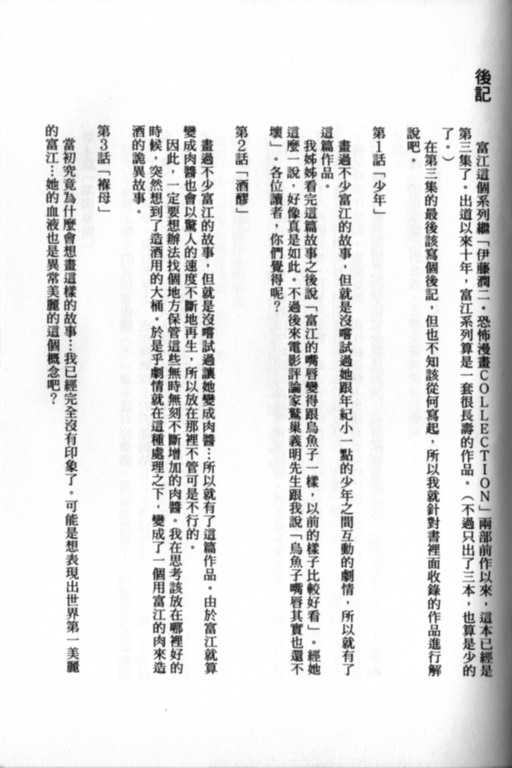 後記
富江這個系列繼「伊藤潤二‧恐怖漫畫COLLECTION」兩部前作以來，這本已經是
第三集了。出道以來十年，富江系列算是一套很長壽的作品。（不過只出了三本，也算是少的
了。）
在第三集的最後該寫個後記，但也不知該從何寫起，所以我就針對書裡面收錄的作品進行解
說吧。
第1話「少年」
畫過不少富江的故事，但就是沒嚐試過讓她跟年紀小一點的少年之間互動的劇情，所以就有了
這篇作品。
我姊姊看完這篇故事之後說「富江的嘴唇變得跟烏魚子一樣，以前的樣子比較好看」。經她
這麼一說，好像真是如此。不過後來電影評論家鷲巢義明先生跟我說「烏魚子嘴唇其實也還不
壞」。各位讀者，你們覺得呢？
第2話「酒醪」
畫過不少富江的故事，但就是沒嚐試過讓她變成肉醬…所以就有了這篇作品。由於富江就算
變成肉醬也會以驚人的速度不斷地再生，所以放在那裡不管可是不行的。
因此，一定要想辦法找個地方保管這些無時無刻不斷增加的肉醬。我在思考該放在哪裡好的
時候，突然想到了造酒用的大桶。於是乎劇情就在這種處理之下，變成了一個用富江的肉來造
酒的詭異故事。
第3話「褓母」
當初究竟為什麼會想畫這樣的故事…我已經完全沒有印象了。可能是想表現出世界第一美麗
的富江…她的血液也是異常美麗的這個概念吧？